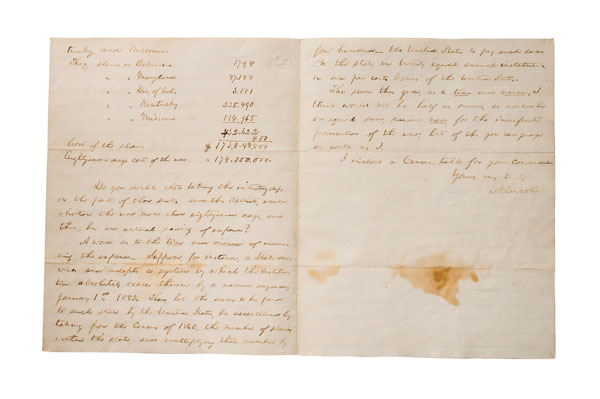 tucky and Missouri.
Thus, slaves in Delaware 1798
" " Maryland 87,188
" " Dis. of Col. 3,181
" " Kentucky 225,490
" " Missouri 114,965
432,622
400
Cost of the slaves $ 173,048,800
Eightyseven days cost of the war " 174,000,000.
Do you doubt that taking the initiatory steps
on the part of those states and this District, would
shorten the war more than eightyseven days, and
thus, be an actual saving of expense?
A word as to the time and manner of incur-
ring the expense. Suppose for instance, a State de-
vises and adopts a system by which the institu-
tion absolutely ceases therein by a named day—say
January 1st 1882. Then let the sum to be paid
to such state by the United States, be ascertained by
taking from the Census of 1860, the number of slaves
within the state, and multiplying that number by
four hundred—the United States to pay such sum
to the state in twenty equal annual instalments
in six per cent. bonds of the United States.
The sum thus given, as to time and manner, I
think would not be half as onerous, as would be
an equal sum, raised now, for the indefinite
prossecution of the war; but of this you can judge
as well as I.
I inclose a Census table for your convenience.
Yours very truly
A. Lincoln